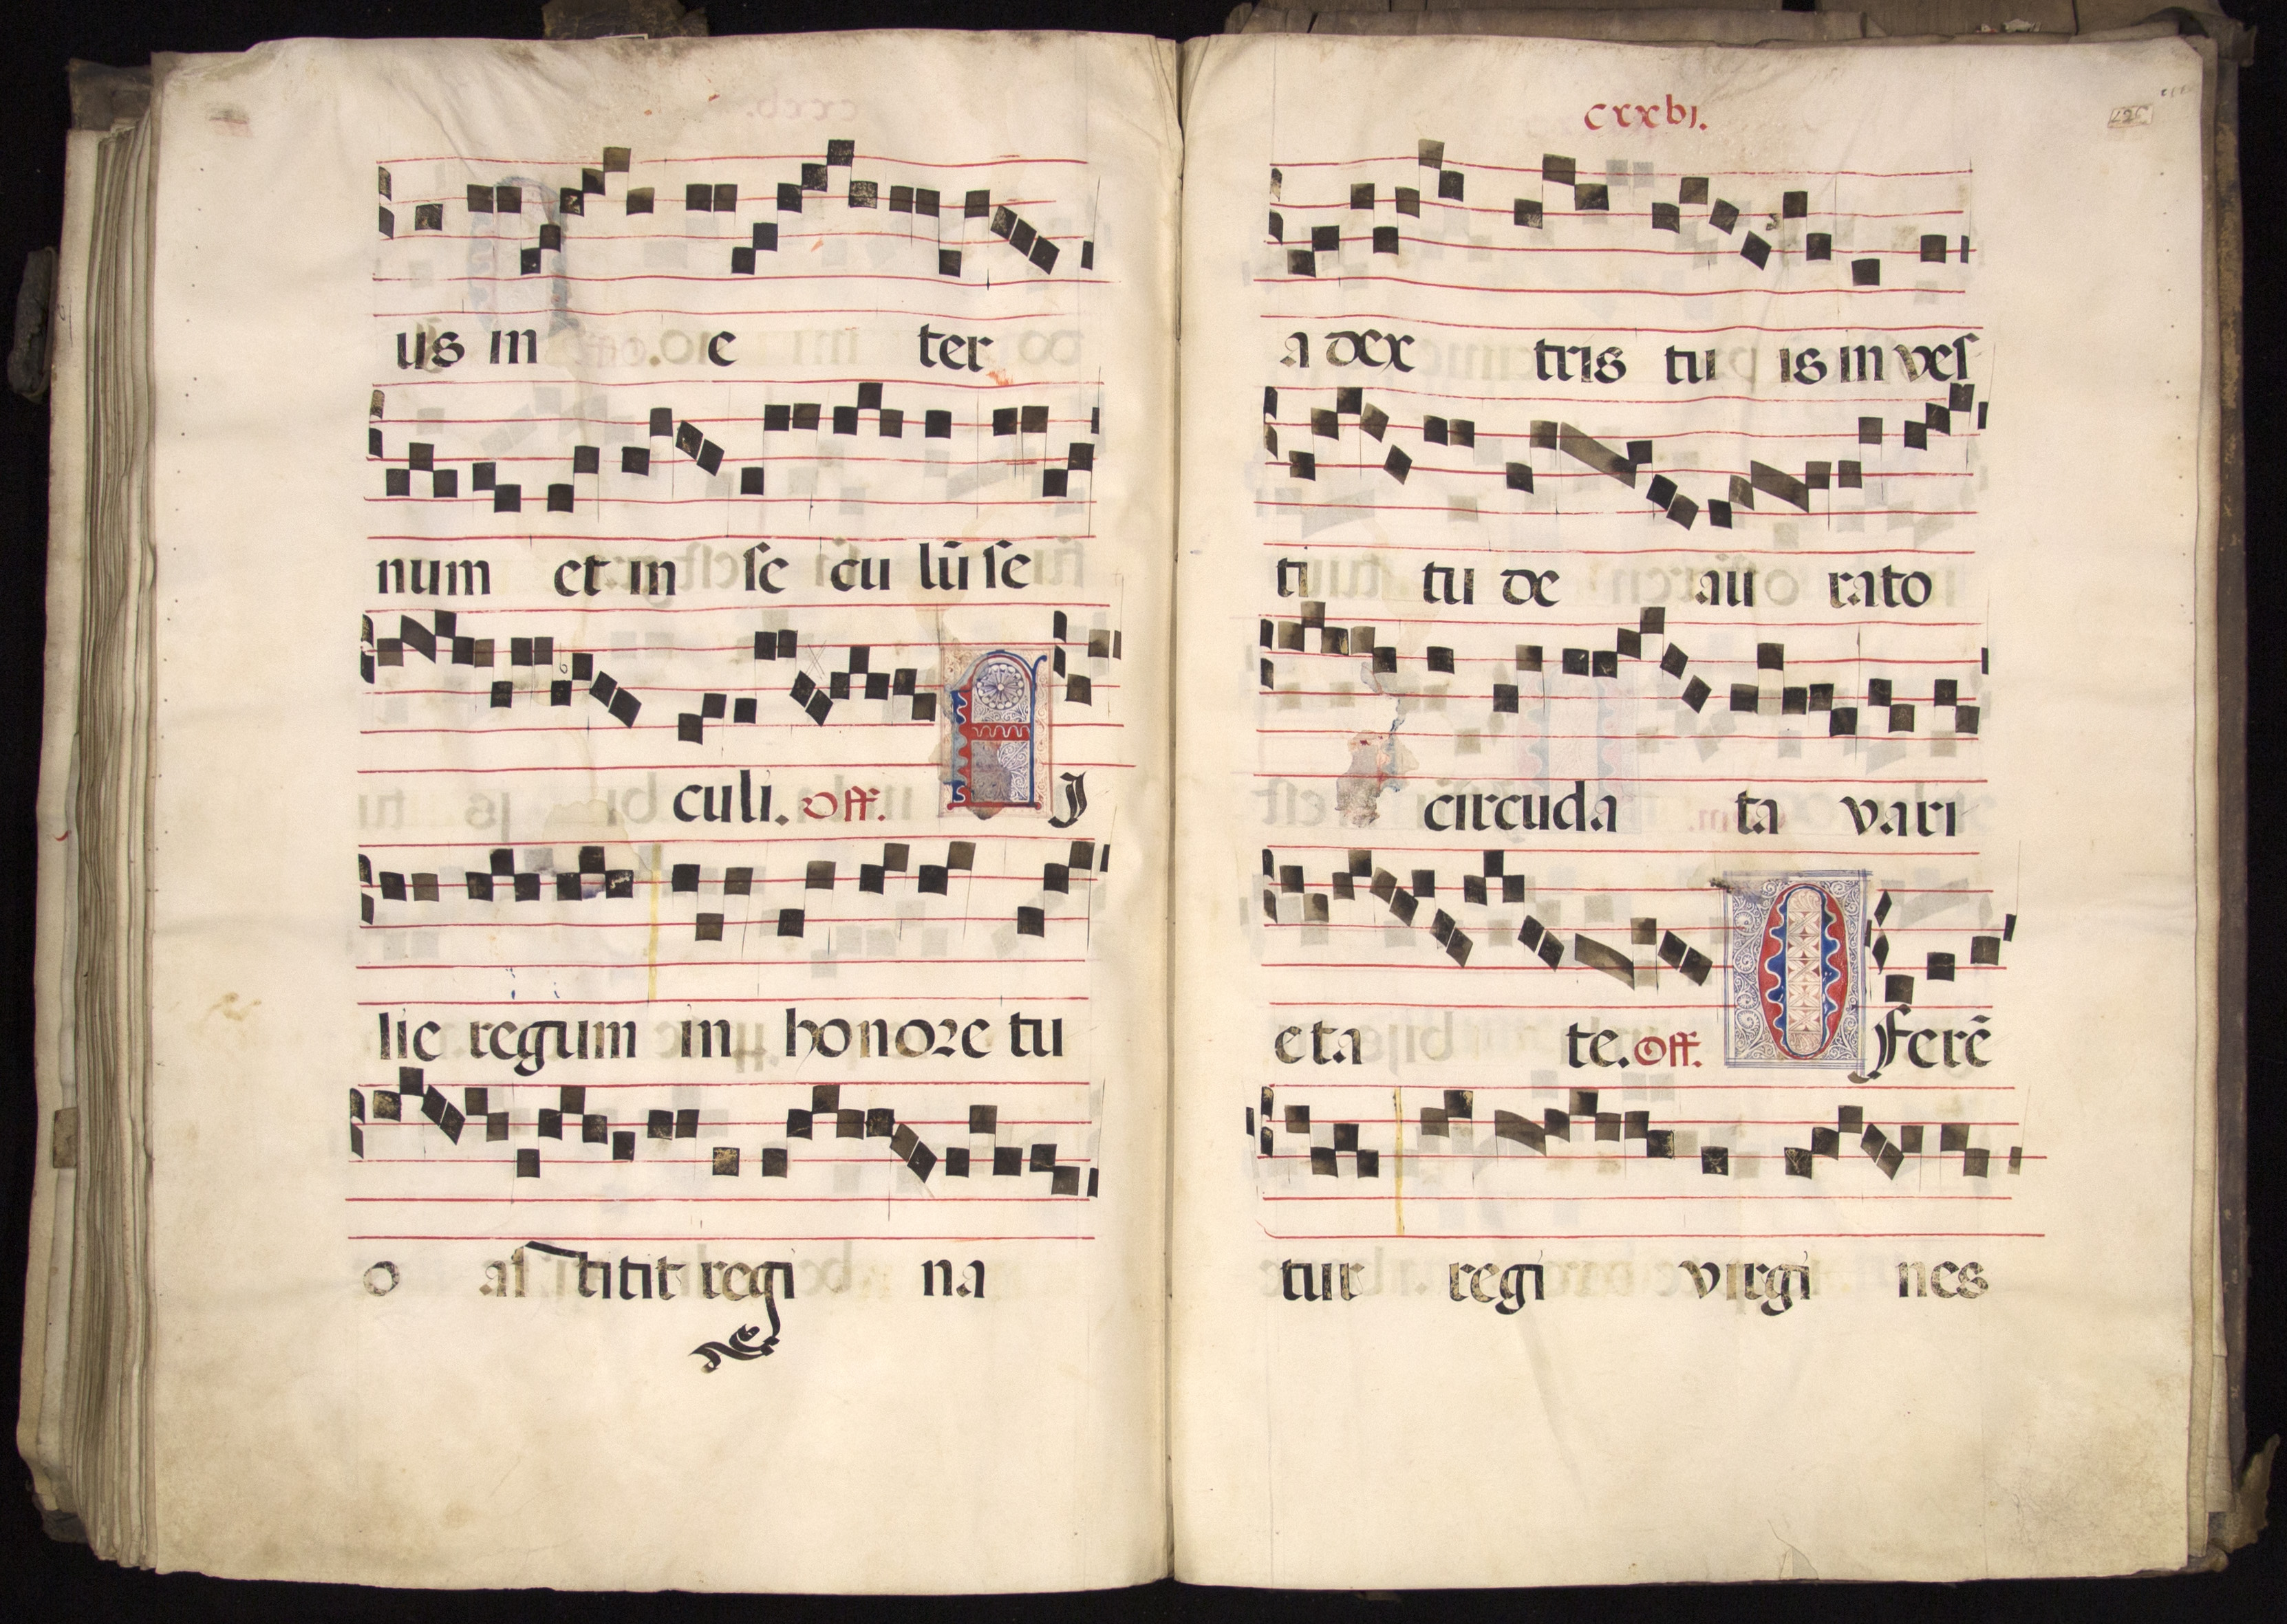 us in e ter
num et in se cu lū se
culi. Off. FI
lie regum in honore tu
o as titit regi na
cxxbj.
a dex tris tu is in ves
ti tu de au rato
circuda ta vari
eta te. Off. Offerē
tur regi virgi nes